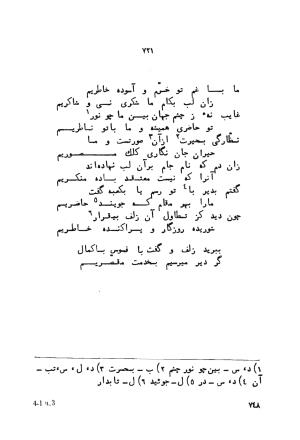 ۷۲۱
ما بـــا غم تو خرّم و آسوده خاطریم
زان لب بکام ما شکری نـی و شاکریم
غایب نه‌ ز چشم جهان بین ما چو نور۱
تو حاضری همیشه و ما باتو ناظـریم
نظّارگی بحیرت۲ ازآن۳ صورتست و مـا
حیران جان نگاری کلک مـــصوریم
زان دم که نام جام برآن لب نهاده‌اند
آنرا که نیست معتقـد بـاده منکـریم
گفتم بدیر یا۴ تو رسم یا بکعبه گفت
مارا بهر مقام کـــه جوینـد۵ حاضریم
چون دید کز تطاول آن زلف بیقرار۶
شوریده روزگار و پـراکنـده خـاطریم
ببرید زلف و گفت با فسوس باکمال
گر دیر میرسیم بخدمت مقصـریـم
۱) د، س - بین‌چو نور چشم ۲) ب - بحسرت ۳) د، ل، س، تب -
آن ۴) د، س - در ۵) ل - جوئید ۶) ل - تابدار
4-1 ч.3
۷۴۸